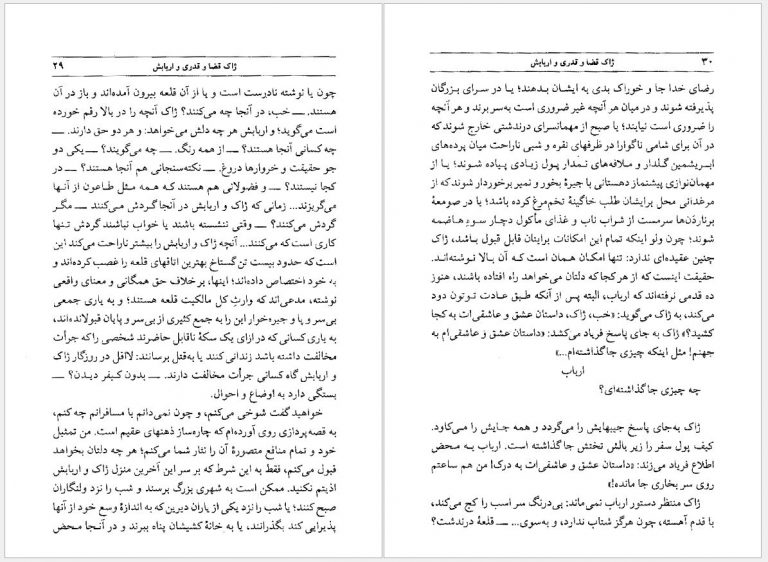 ژاک قضا و قدری و اربابش ۲۹
چون یا نوشته نادرست است و یا از آن قلعه بیرون آمده‌اند و باز در آن
هستند. ـــ خب، در آنجا چه می‌کنند؟ ژاک آنچه را در بالا رقم خورده
است می‌گوید؛ و اربابش هر چه دلش می‌خواهد: و هر دو حق دارند. ـــ
چه کسانی آنجا هستند؟ ـــ از همه رنگ. ـــ چه می‌گویند؟ ـــ یکی دو
جو حقیقت و خروارها دروغ. ـــ نکته‌سنجانی هم آنجا هستند؟ ـــ در
کجا نیستند؟ ـــ و فضولانی هم هستند کـه همـه مـثل طـاعون از آنـها
می‌گریزند... زمانی که ژاک و اربابش در آنجا گـردش مـی‌کنند ـــ مگـر
گردش می‌کنند؟ ـــ وقتی ننشسته باشند یا خواب نباشند گردش تـنها
کاری است که می‌کنند... آنچه ژاک و اربابش را بیشتر ناراحت می‌کند این
است که حدود بیست تن گستاخ بهترین اتاقهای قلعه را غصب کرده‌اند و
به خود اختصاص داده‌اند؛ اینها، بر خلاف حق همگانی و معنای واقعی
نوشته، مدعی‌اند که وارثِ کل مالکیت قلعه هستند؛ و به یاری جمعی
بی‌سر و پا و جیره‌خوار این را به جمع کثیری از بی‌سر و پایان قبولانده‌اند، و
به یاری کسانی که در ازای یک سکهٔ ناقابل حاضرند شخصی را که جرأت
مخالفت داشته باشد زندانی کنند یا به‌قتل برسانند: لااقل در روزگار ژاک
و اربابش گاه کسانی جرأت مخالفت دارند. ـــ بدون کـیفر دیـدن؟ ـــ
بستگی دارد به اوضاع و احوال.
خواهید گفت شوخی می‌کنم، و چون نمی‌دانم با مسافرانم چه کنم،
به قصه‌پردازی روی آورده‌ام که چاره‌ساز ذهنهای عقیم است. من تمثیل
خود و تمام منافع متصوررهٔ آن را نثار شما می‌کنم؛ هر چه دلتان بخواهد
قبول می‌کنم، فقط به این شرط که بر سر این آخرین منزل ژاک و اربابش
اذیتم نکنید. ممکن است به شهری بزرگ برسند و شب را نزد ولنگاران
صبح کنند؛ یا شب را نزد یکی از یاران دیرین که به اندازهٔ وسع خود از آنها
پذیرایی کند بگذرانند، یا به خانهٔ کشیشان پناه ببرند و در آنـجا مـحض
۳۰ ژاک قضا و قدری و اربابش
رضای خدا جا و خوراک بدی به ایشـان بـدهند؛ یـا در سـرای بـزرگان
پذیرفته شوند و در میان هر آنچه غیر ضروری است به‌سر برند و هر آنچه
را ضروری است نیابند؛ یا صبح از مهمانسرای درندشتی خارج شوند که
در آن برای شامی ناگوارا در ظرفهای نقره و شبی ناراحت میان پرده‌های
ابریشمین گلدار و مـلافه‌های نمدار پول زیادی پـیاده شـوند؛ یـا از
مهمان‌نوازی پیشنماز دهستانی با جیرهٔ بخور و نمیر برخوردار شوند که از
مرغدانی محل برایشان طلب خاگینهٔ تخم‌مرغ کرده باشد؛ یا در صومعهٔ
برناردَن‌ها سرمست از شراب ناب و غذای مأکول دچار سـوءِ هـاضمه
شوند؛ چون ولو اینکه تمام این امکانات برایتان قابل قبول بـاشد، ژاک
چنین عقیده‌ای ندارد: تنها امکان همـان است کـه آن بـالا نـوشته‌انـد.
حقیقت اینست که از هر کجا که دلتان می‌خواهد راه افتاده باشند، هنوز
ده قدمی نرفته‌اند که ارباب، البته پس از آنکه طبق عـادت تـوتون دود
می‌کند، به ژاک می‌گوید: «خب، ژاک، داستان عشق و عاشقی‌ات به کجا
کشید؟» ژاک به جای پاسخ فریاد می‌کشد: «داستان عشق و عاشقی‌ام به
جهنم! مثل اینکه چیزی جا گذاشته‌ام...»
ارباب
چه چیزی جا گذاشته‌ای؟
ژاک به‌جای پاسخ جیبهایش را می‌گردد و همه جـایش را مـی‌کاود.
کیف پول سفر را زیر بالش تختش جا گذاشته است. ارباب بـه مـحض
اطلاع فریاد می‌زند: «داستان عشق و عاشقی‌ات به درک! من هم ساعتم
روی سر بخاری جا مانده!»
ژاک منتظر دستور ارباب نمی‌ماند: بی‌درنگ سر اسب را کج می‌کند،
با قدمِ آهسته، چون هرگز شتاب ندارد، و به‌سوی... ـــ قلعهٔ درندشت؟